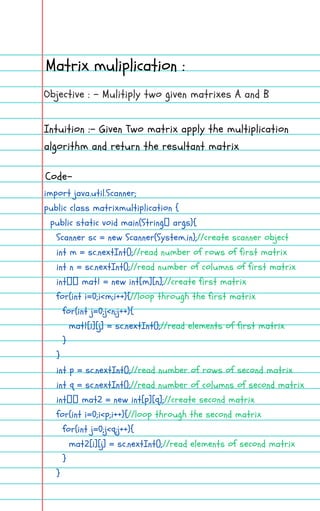 Matrix muliplication :
Objective : - Mulitiply two given matrixes A and B
Intuition :- Given Two matrix apply the multiplication
algorithm and return the resultant matrix
Code-
import java.util.Scanner;
public class matrixmultiplication {
public static void main(String[] args){
Scanner sc = new Scanner(System.in);//create scanner object
int m = sc.nextInt();//read number of rows of first matrix
int n = sc.nextInt();//read number of columns of first matrix
int[][] mat1 = new int[m][n];//create first matrix
for(int i=0;i<m;i++){//loop through the first matrix
for(int j=0;j<n;j++){
mat1[i][j] = sc.nextInt();//read elements of first matrix
}
}
int p = sc.nextInt();//read number of rows of second matrix
int q = sc.nextInt();//read number of columns of second matrix
int[][] mat2 = new int[p][q];//create second matrix
for(int i=0;i<p;i++){//loop through the second matrix
for(int j=0;j<q;j++){
mat2[i][j] = sc.nextInt();//read elements of second matrix
}
}